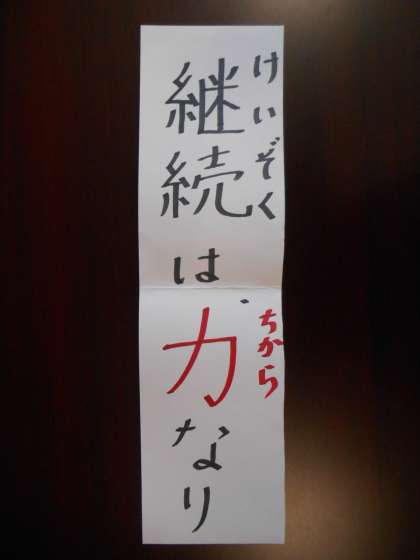 継続は力なり
けいぞく
ちから